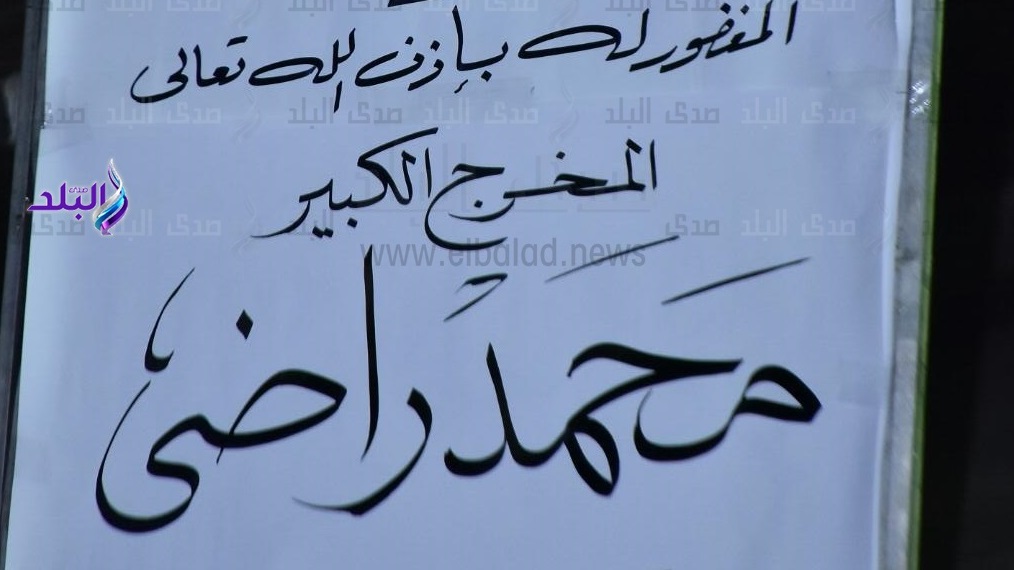 المغفور له بإذن الله تعالى
المخرج الكبير
صدى البلد
www.elbalad.news
محمد راضى